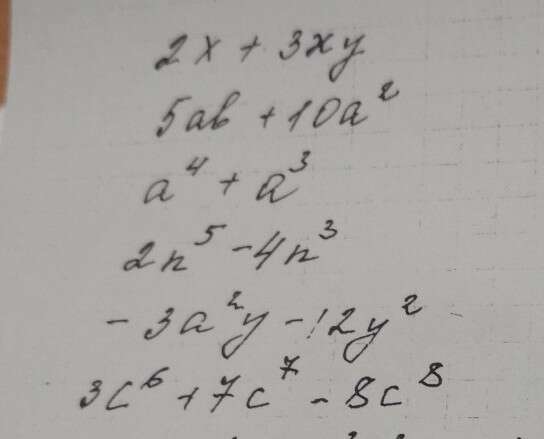 2x + 3xy
5ab + 10a²
a⁴ + a³
2n⁵ - 4n³
- 3a²y - 12y²
3c⁶ + 7c⁷ - 8c⁸